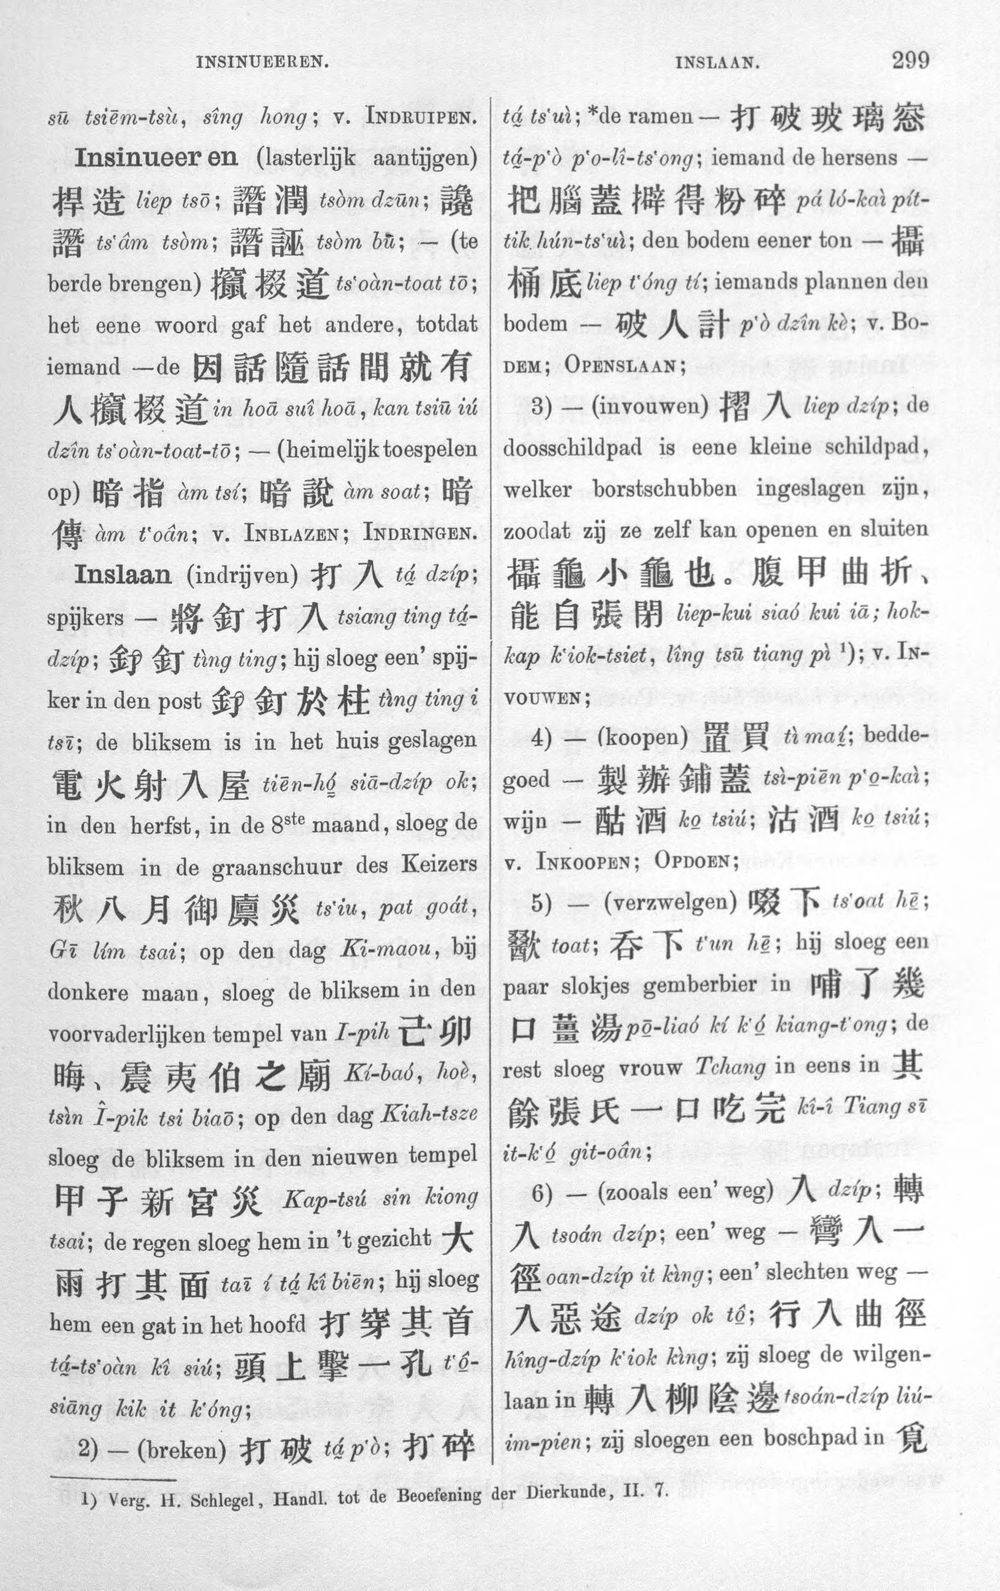 INSINUEEREN. INSLAAN. 299
sū tsiēm-tsù, sîng hong; v. INDRUIPEN.
Insinueeren (lasterlijk aantijgen)
捏造 liep tsō; 譖潤 tsòm dzūn; 讒
譖 ts‘âm tsòm; 譖誣 tsòm bū; — (te
berde brengen) 攛掇道 ts‘oàn-toat tō;
het eene woord gaf het andere, totdat
iemand — de 因話隨話間就有
人攛掇道 in hoā suî hoā, kan tsiū iú
dzîn ts‘oàn-toat-tō; — (heimelijk toespelen
op) 暗指 àm tsí; 暗說 àm soat; 暗
傳 àm t‘oân; v. INBLAZEN; INDRINGEN.
Inslaan (indrijven) 打入 tá̱ dzíp;
spijkers — 將釘打入 tsiang ting tá̱-
dzíp; 釘 tìng ting; hij sloeg een’ spij-
ker in den post 釘於柱 tìng ting i
tsī; de bliksem is in het huis geslagen
電火射入屋 tiēn-hó̱ siā-dzíp ok;
in den herfst, in de 8ste maand, sloeg de
bliksem in de graanschuur des Keizers
秋八月御廩災 ts‘iu, pat goát,
Gī lím tsai; op den dag Ki-maou, bij
donkere maan, sloeg de bliksem in den
voorvaderlijken tempel van I-pih 己卯
晦、震夷伯之廟 Kí-baó, hoè,
tsìn Î-pik tsi biaō; op den dag Kiah-tsze
sloeg de bliksem in den nieuwen tempel
甲子新宮災 Kap-tsú sin kiong
tsai; de regen sloeg hem in ’t gezicht 大
雨打其面 taī í tá̱ kî biēn; hij sloeg
hem een gat in het hoofd 打穿其首
tá̱-ts‘oàn kî siú; 頭上擊一孔 t‘ô̱-
siāng kik it k‘óng;
2) — (breken) 打破 tá̱ p‘ò; 打碎
tá̱ ts‘uì; *de ramen — 打破玻璃窓
tá̱-p‘ò p‘o-lî-ts‘ong; iemand de hersens —
把腦蓋擗得粉碎 pá ló-kaì pít-
tik hún-ts‘uì; den bodem eener ton — 攝
桶底 liep t‘óng tí; iemands plannen den
bodem — 破人計 p‘ò dzîn kè; v. BO-
DEM; OPENSLAAN;
3) — (invouwen) 摺入 liep dzíp; de
doosschildpad is eene kleine schildpad,
welker borstschubben ingeslagen zijn,
zoodat zij ze zelf kan openen en sluiten
攝龜小龜也。腹甲曲折、
能自張閉 liep-kui siaó kui iā; hok-
kap k‘iok-tsiet, lîng tsū tiang pì 1); v. IN-
VOUWEN;
4) — (koopen) 置買 tì maí̱; bedde-
goed — 製辦鋪蓋 tsì-piēn p‘o̱-kaì;
wijn — 酤酒 ko̱ tsiú; 沽酒 ko̱ tsiú;
v. INKOOPEN; OPDOEN;
5) — (verzwelgen) 啜下 ts‘oat hē̱;
歠 toat; 吞下 t‘un hē̱; hij sloeg een
paar slokjes gemberbier in 哺了幾
口薑湯 pō̱-liaó kí k‘ó̱ kiang-t‘ong; de
rest sloeg vrouw Tchang in eens in 其
餘張氏一口吃完 kî-î Tiang sī
it-k‘ó̱ git-oân;
6) — (zooals een’ weg) 入 dzíp; 轉
入 tsoán dzíp; een’ weg — 彎入一
徑 oan-dzíp it kìng; een’ slechten weg —
入惡途 dzíp ok tô̱; 行入曲徑
hîng-dzíp k‘iok kìng; zij sloeg de wilgen-
laan in 轉入柳陰邊 tsoán-dzíp liú-
im-pien; zij sloegen een boschpad in 覓
1) Verg. H. Schlegel, Handl. tot de Beoefening der Dierkunde, II. 7.